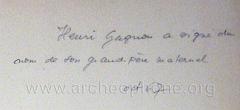 Henri Gagnon a signé du
nom de son grand-père maternel
www.archeophone.org